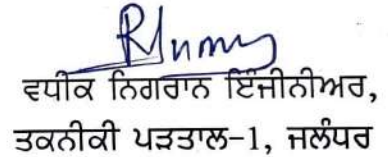 ਵਧੀਕ ਨਿਗਰਾਨ ਇੰਜੀਨੀਅਰ,
ਤਕਨੀਕੀ ਪੜਤਾਲ-1, ਜਲੰਧਰ